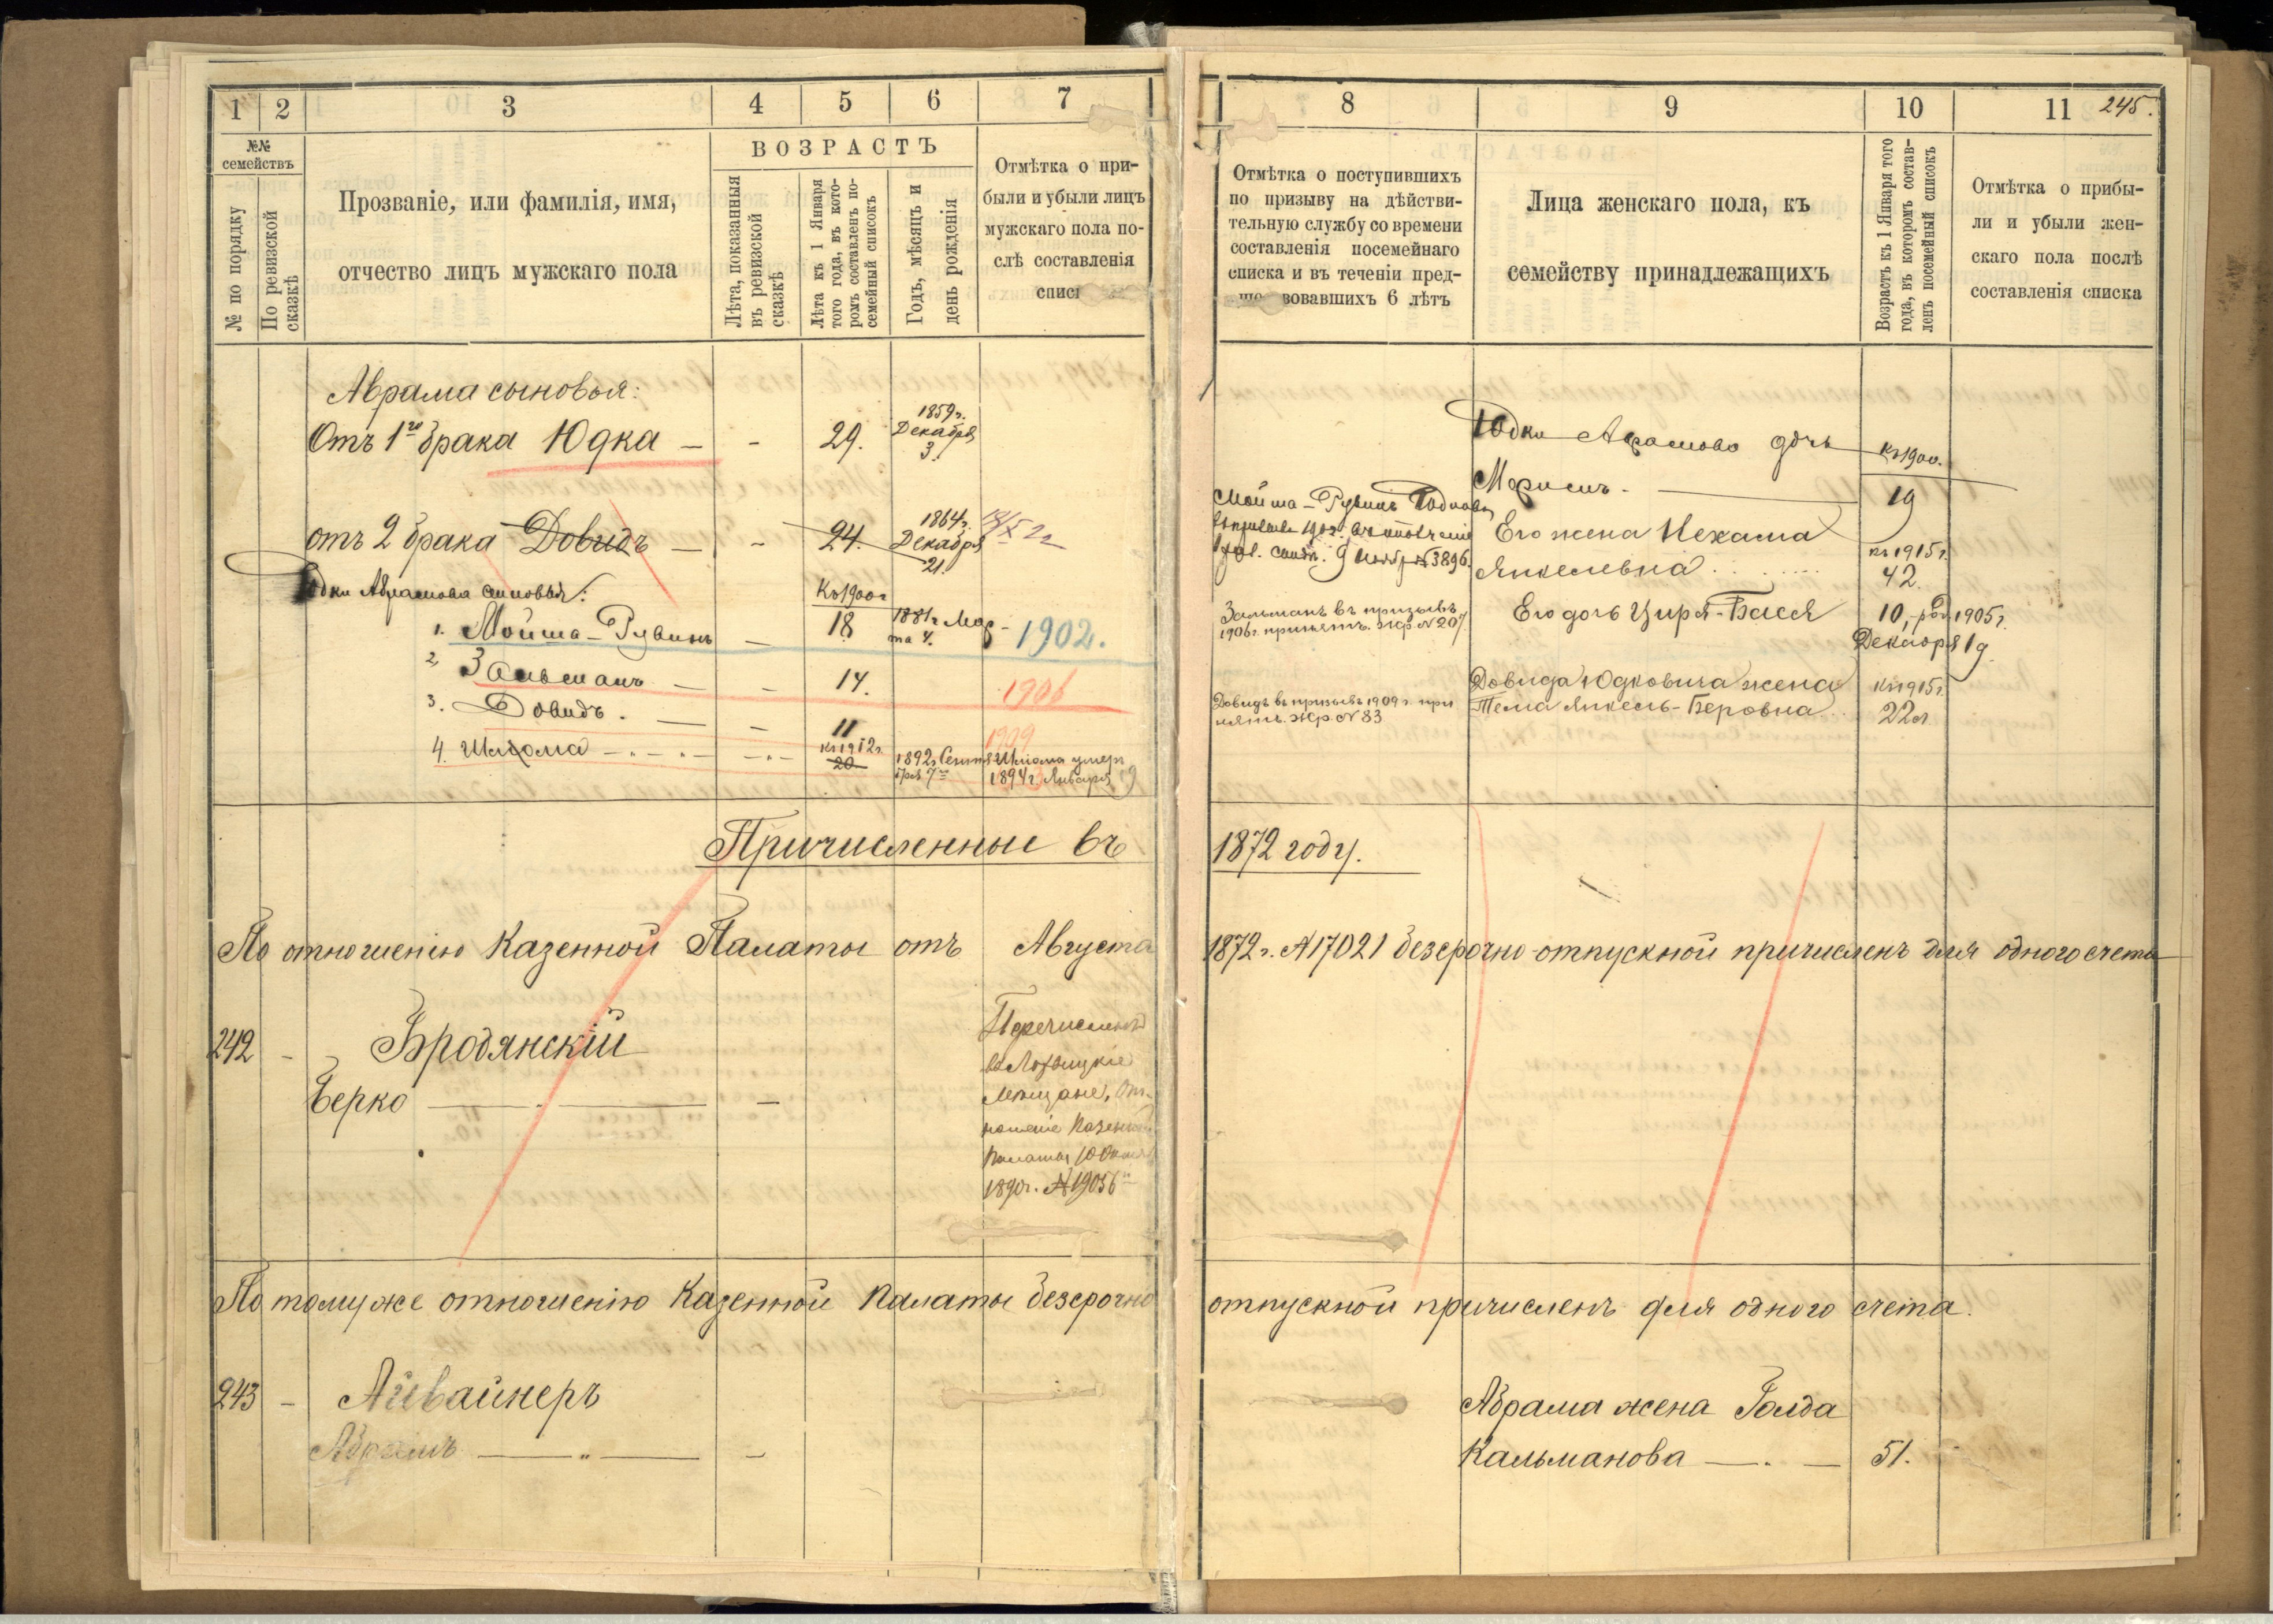 1 2 3 4 5 6 7
№№ семействъ
№ по порядку
По ревизской сказкѣ
Прозваніе, или фамилія, имя,
отчество лицъ мужскаго пола
ВОЗРАСТЪ
Лѣта, показанныя
въ ревизской
сказкѣ
Лѣта къ 1 Января
того года, въ кото-
ромъ составленъ по-
семейный списокъ
Годъ, мѣсяцъ и
день рожденія
Отмѣтка о при-
были и убыли лицъ
мужскаго пола по-
слѣ составленія
Аврама сыновья:
Отъ 1го брака Юдка — - 29. 1859г. Декабря 3.
отъ 2 брака Довидъ — - 24. 1864г. Декабря 21.
Юдки Абрамова сыновья:
Къ 1900г
1. Мойша-Рувинъ — 18 1881г. Мар-
та 4. 1902.
2. Зальманъ — - 14. 1906
3. Довидъ. — - 11 1909
4. Шлома къ 1912г. 20 1892г. Сентя-
бря 7 Шлома умеръ
1894г. Января 9
Причисленные въ
По отношенію Казенной Палаты отъ Августа
242 - Бродянскій
Берко — -
Перечисленъ
въ Лохвицкіе
Мещане, От-
ношеніе Казенной
Палаты 10
1890г. №19056
По тому же отношенію Казенной Палаты безсрочно
243 - Айвайнеръ
Абрамъ — „ — -
8 9 10 11 245.
Отмѣтка о поступившихъ
по призыву на дѣйстви-
тельную службу со времени
составленія посемейнаго
списка и въ теченіи пред-
вовавшихъ 6 лѣтъ
Лица женскаго пола, къ
семейству принадлежащихъ
Возрастъ къ 1 Января того
года, въ которомъ состав-
ленъ посемейный списокъ
Отмѣтка о прибы-
ли и убыли жен-
скаго пола послѣ
составленія списка
Юдки Абрамова дочь къ 1900.
Мариасъ. — 19
Мойша-Рувинъ Юдковъ
9 Ноябр №3896.
Его жена Нехама
Янкелевна къ 1915г. 42.
Зальманъ въ призывъ
1906г. принятъ. Жр. №207
Его дочь Цирля-Бася 10, род. 1905г.
Декабря 19
Довидъ въ призывъ 1909г. при
нятъ. Жр. №83
Довида Юдковича жена къ 1915г.
Тема Янкель-Беровна 22л
1872 году.
1872г. №17021 безсрочно-отпускной причисленъ для одного счета
отпускной причисленъ для одного счета.
Абрама жена Голда
Кальманова — 51.